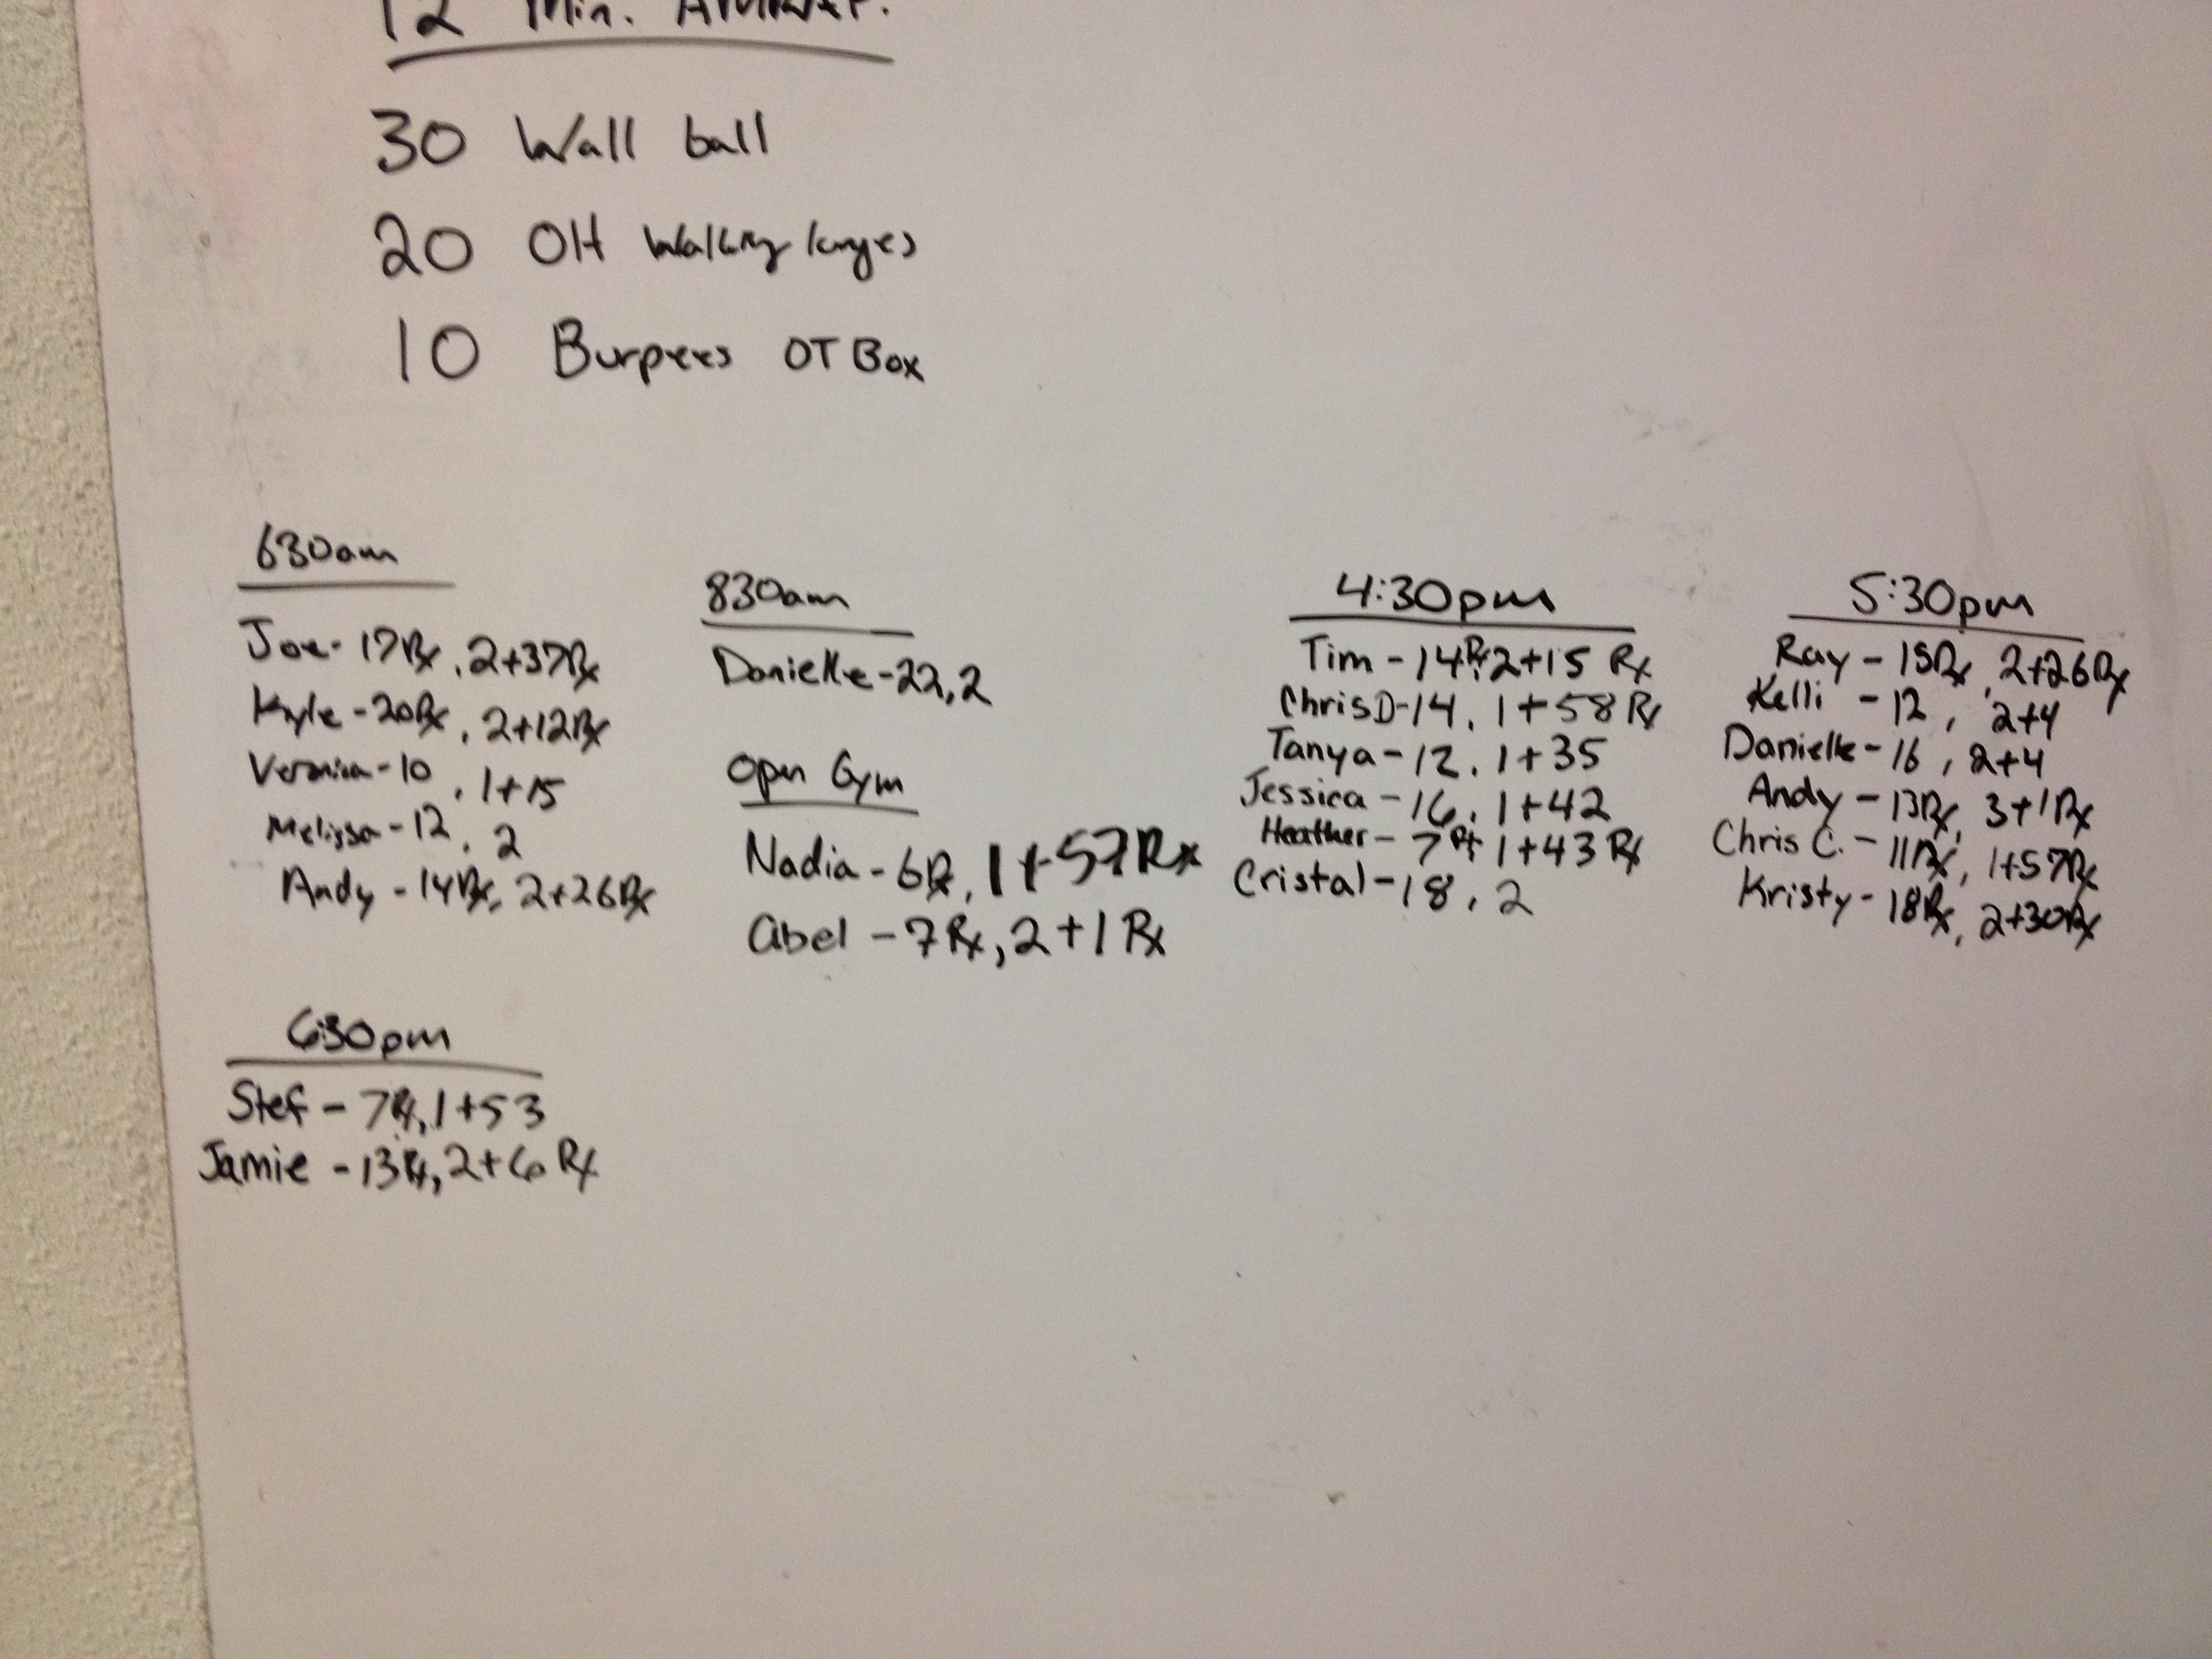 12 Min. AMRAP.
30 Wall ball
20 OH Walking lunges
10 Burpees OT Box
630am
Joe- 17Rx, 2+37Rx
Kyle -20Rx, 2+12Rx
Veronica-10, 1+15
Melissa-12, 2
Andy -14Rx, 2+26Rx
830am
Danielle-22,2
Open Gym
Nadia-6Rx, 1+57Rx
Abel -7Rx, 2+1Rx
4:30pm
Tim -14Rx, 2+15 Rx
Chris D-14, 1+58 Rx
Tanya-12, 1+35
Jessica -16, 1+42
Heather- 7Rx, 1+43 Rx
Cristal-18, 2
5:30pm
Ray - 15Rx, 2+26Rx
Kelli -12, 2+4
Danielle-16, 2+4
Andy -13Rx, 3+1Rx
Chris C. -11Rx, 1+57Rx
Kristy- 18Rx, 2+30Rx
6:30pm
Stef - 7Rx, 1+53
Jamie -13Rx, 2+6 Rx